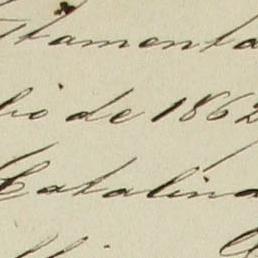 tamenta
bio de 1862
Catalina